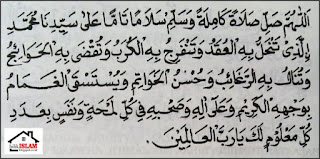 اَللّٰهُمَّ صَلِّ صَلَاةً كَامِلَةً وَسَلِّمْ سَلَامًا تَامًّا عَلَى سَيِّدِنَا مُحَمَّدٍ
ࣙالَّذِي تَنْحَلُّ بِهِ الْعُقَدُ وَتَنْفَرِجُ بِهِ الْكُرَبُ وَتُقْضَى بِهِ الْحَوَائِجُ
وَتُنَالُ بِهِ الرَّغَائِبُ وَحُسْنُ الْخَوَاتِمِ وَيُسْتَسْقَى الْغَمَامُ
بِوَجْهِهِ الْكَرِيْمِ وَعَلَى آلِهِ وَصَحْبِهِ فِي كُلِّ لَمْحَةٍ وَنَفَسٍ بِعَدَدِ
كُلِّ مَعْلُوْمٍ لَكَ يَا رَبَّ الْعَالَمِيْنَ.
ISLAM